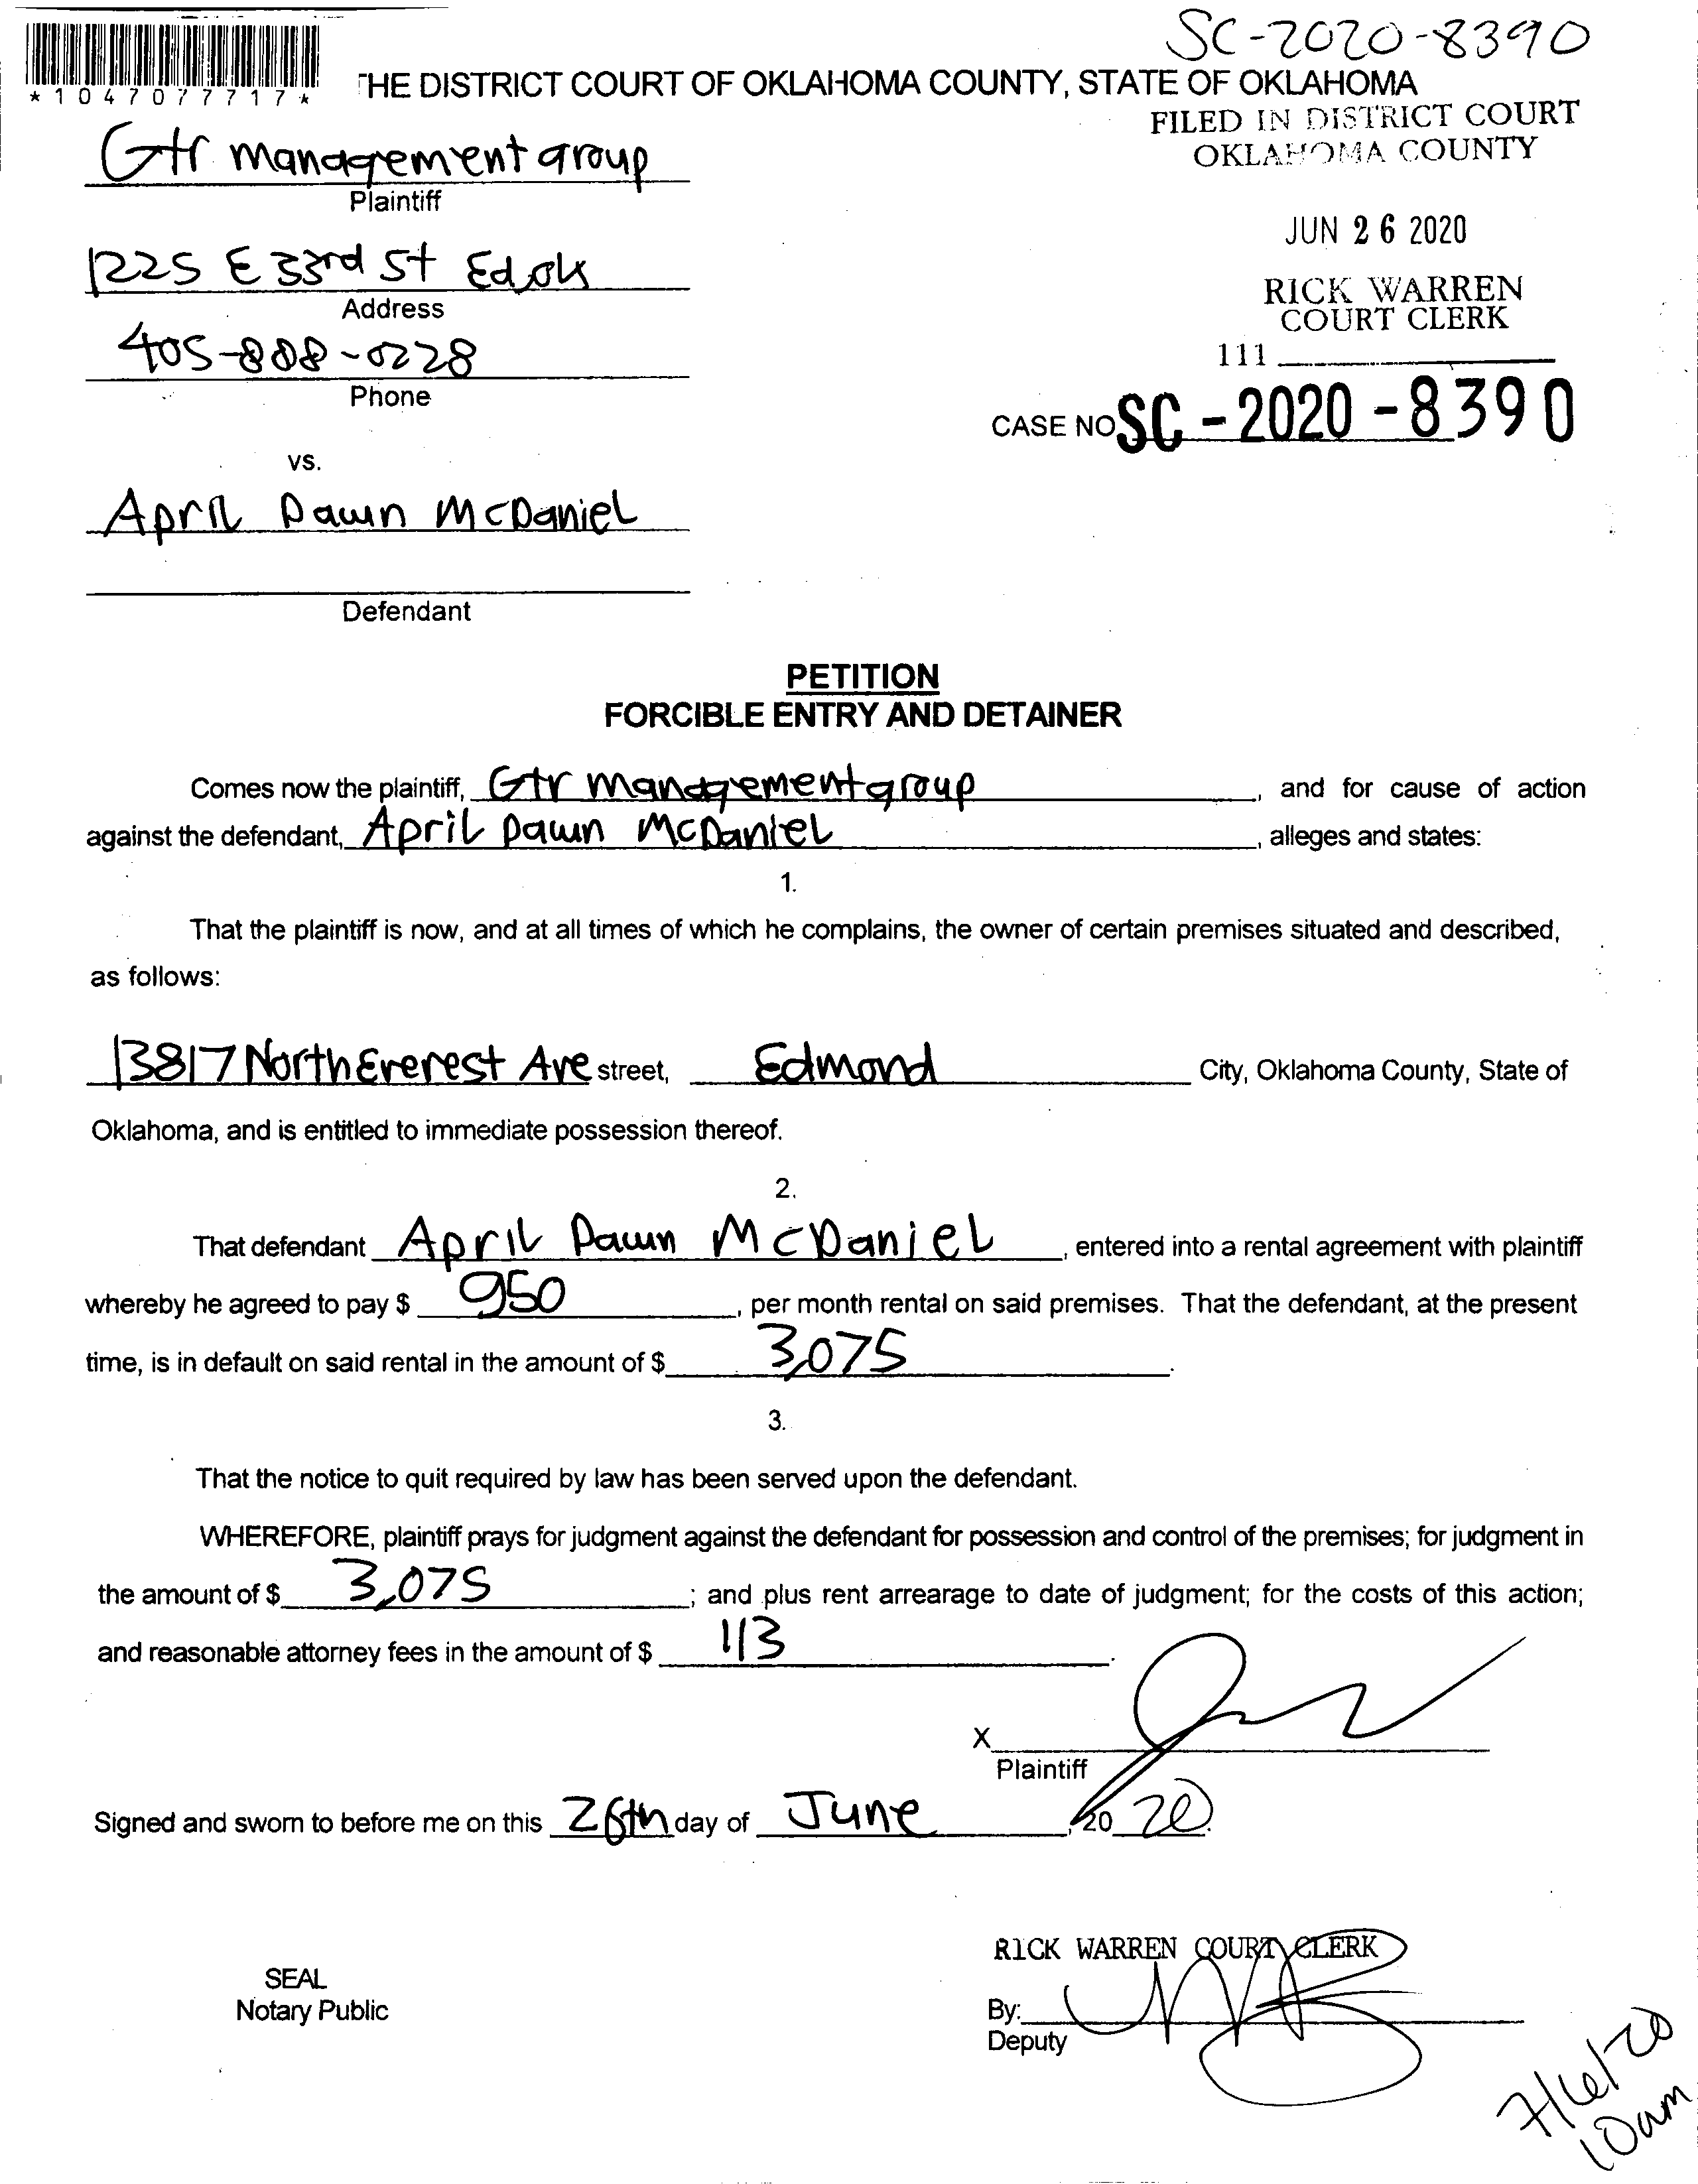 SC-2020-8390
*1047077717*
THE DISTRICT COURT OF OKLAHOMA COUNTY, STATE OF OKLAHOMA
FILED IN DISTRICT COURT
OKLAHOMA COUNTY
Gtr management group
Plaintiff
JUN 26 2020
1225 E 33rd St Ed ok
Address
RICK WARREN
COURT CLERK
405-808-0228
111
Phone
CASE NO SC-2020-8390
vs.
April Dawn McDaniel
Defendant
PETITION
FORCIBLE ENTRY AND DETAINER
Comes now the plaintiff, Gtr management group, and for cause of action
against the defendant, April Dawn McDaniel, alleges and states:
1.
That the plaintiff is now, and at all times of which he complains, the owner of certain premises situated and described,
as follows:
13817 North Everest Ave street, Edmond City, Oklahoma County, State of
Oklahoma, and is entitled to immediate possession thereof.
2.
That defendant April Dawn McDaniel, entered into a rental agreement with plaintiff
whereby he agreed to pay $ 950, per month rental on said premises. That the defendant, at the present
time, is in default on said rental in the amount of $ 3,075.
3.
That the notice to quit required by law has been served upon the defendant.
WHEREFORE, plaintiff prays for judgment against the defendant for possession and control of the premises; for judgment in
the amount of $ 3,075; and plus rent arrearage to date of judgment; for the costs of this action;
and reasonable attorney fees in the amount of $ 113.
X
Plaintiff
Signed and sworn to before me on this 26th day of June, 20 20.
RICK WARREN COURT CLERK
SEAL
Notary Public
By:
Deputy
7/6/20
10am